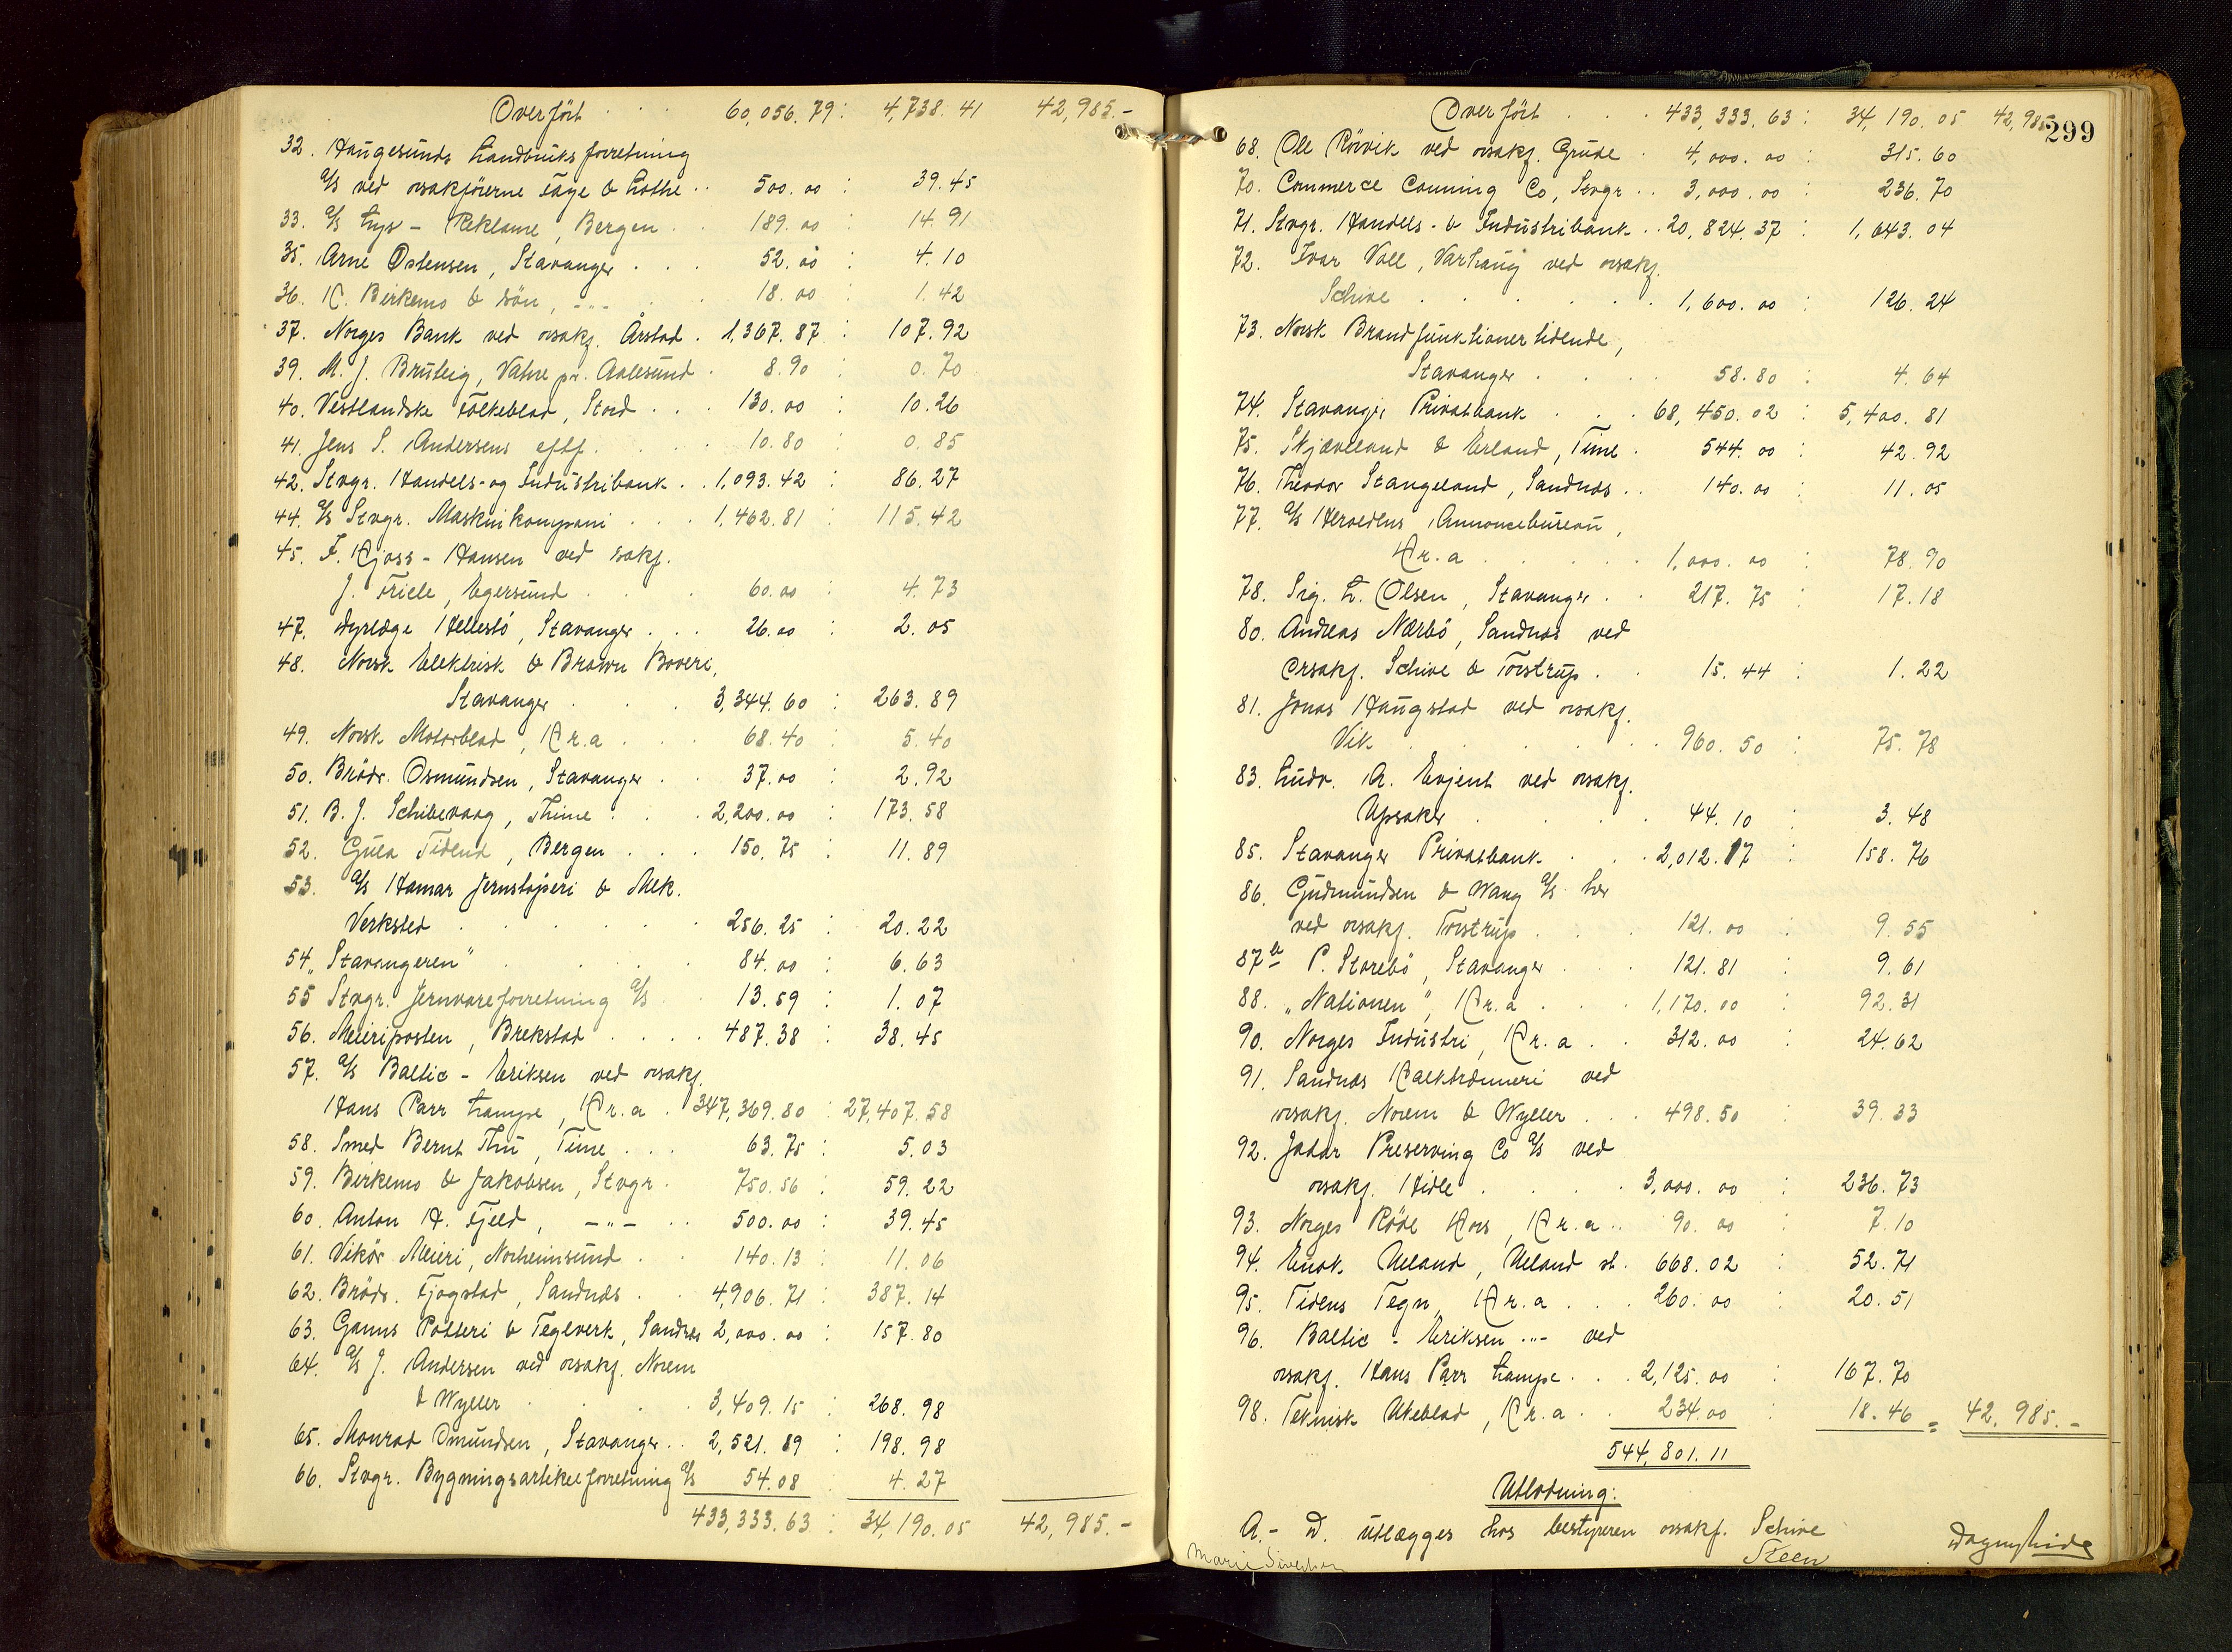 Overført . . . 60,056.79 : 4,738.41 42,985.-
32. Haugesunds Landbruksforretning
A/S ved orsakførerne Fage & Lothe . . 500.00 : 39.45
33. A/S Lys - Reklame, Bergen . . 189.00 : 14.91
35. Arne Ostensen, Stavanger . . . 52.00 : 4.10
36. K. Birkemo & Søn, -"- . . 18.00 : 1.42
37. Norges Bank ved orsakf. Årstad . 1,367.87 : 107.92
39. M. J. Bruteig, Vatne pr. Aalesund . 8.90 : 0.70
40. Vestlandske Folkeblad, Stord . . . 130.00 : 10.26
41. Jens S. Andersens eftf. . . . 10.80 : 0.85
42. Stvgr. Handels- og Industribank . . 1,093.42 : 86.27
44. A/S Stvgr. Maskinkompani . . . 1,462.81 : 115.42
45. F. Kjoss - Hansen ved sakf.
J. Friele, Egersund . . . 60.00 : 4.73
47. Dyrlæge Hellesø, Stavanger . . . 26.00 : 2.05
48. Norsk Elektrisk & Brown Boveri,
Stavanger . . . 3,344.60 : 263.89
49. Norsk Motorblad, Kr.a . . . 68.40 : 5.40
50. Brødr. Osmundsen, Stavanger . . 37.00 : 2.92
51. B. J. Schibevaag, Thime . . . 2,200.00 : 173.58
52. Gula Tidend, Bergen . . . 150.75 : 11.89
53. A/S Hamar Jernstøperi & Mek.
Verksted . . . . . 256.25 : 20.22
54. "Stavangeren" . . . . 84.00 : 6.63
55 Stvgr. Jernvareforretning A/S . . 13.59 : 1.07
56. Meieriposten, Brekstad . . . . 487.38 : 38.45
57. A/S Baltic - Eriksen ved orsakf.
Hans Parr Lampe, Kr.a . 347,369.80 : 27,407.58
58. Smed Bernt Thu, Time . . . 63.75 : 5.03
59. Birkemo & Jakobsen, Stvgr . 750.56 : 59.22
60. Anton H. Fjeld, -"- . . 500.00 : 39.45
61. Vikør Meieri, Norheimsund . . 140.13 : 11.06
62. Brødr. Fjogstad, Sandnæs . . 4,906.71 : 387.14
63. Ganns Potteri & Teglverk, Sandnæs 2,000.00 : 157.80
64. A/S J. Andersen ved orsakf. Norem
& Wyller . . . . 3,409.15 : 268.98
65. Monrad Omundsen, Stavanger . . 2,521.89 : 198.98
66. Stvgr. Bygningsartikkelforretning A/S 54.08 : 4.27
433,333.63 : 34,190.05 42,985.-
299
Overført . . . 433,333.63 : 34,190.05 42,985
68. Ole Rørvik ved orsakf. Grude . 4,000.00 : 315.60
70. Commerce Canning Co, Stvgr . . 3,000.00 : 236.70
71. Stvgr. Handels- & Industribank . . 20,824.37 : 1,643.04
72. Ivar Voll, Varhaug ved orsakf.
Schive . . . . . . 1,600.00 : 126.24
73. Norsk Brandfunktionertidende,
Stavanger . . . . 58.80 : 4.64
74. Stavanger Privatbank . . . 68,450.02 : 5,400.81
75. Skjæveland & Erland, Time . 544.00 : 42.92
76. Theodor Stangeland, Sandnæs . . 140.00 : 11.05
77. A/S Heroldens Annoncebureau,
Kr.a . . . . . 1,000.00 : 78.90
78. Sig. L. Olsen, Stavanger . . 217.75 : 17.18
80. Andreas Nærbø, Sandnæs ved
Orsakf. Schive & Torstrup . . 15.44 : 1.22
81. Jonas Haugstad ved orsakf.
Vik . . . . . . 960.50 : 75.78
83. Ludv. A. Evjent ved orsakf.
Opsaker . . . . 44.10 : 3.48
85. Stavanger Privatbank . . . 2,012.17 : 158.76
86. Gudmundsen & Wang A/S her
ved orsakf. Torstrup . . . 121.00 : 9.55
87 P. Storebø, Stavanger . . . 121.81 : 9.61
88. "Nationen", Kr.a . . . 1,170.00 : 92.31
90. Norges Industri, Kr.a . . 312.00 : 24.62
91. Sandnæs Kalkbrænneri ved
orsakf. Norem & Wyller . . . 498.50 : 39.33
92. Jadar Preserving Co A/S ved
orsakf. Hidle . . . . 3,000.00 : 236.73
93. Norges Røde Kors, Kr.a . . 90.00 : 7.10
94. Enok Ueland, Ueland st. 668.02 : 52.71
95. Tidens Tegn, Kr.a . . . 260.00 : 20.51
96. Baltic - Eriksen -"- ved
orsakf. Hans Parr Lampe . . . 2,125.00 : 167.70
98. Teknisk Ukeblad, Kr.a . . 234.00 : 18.46 = 42,985.-
544,801.11
Utlodning:
A.- D. utlægges hos bestyreren orsakf. Schive
Steen